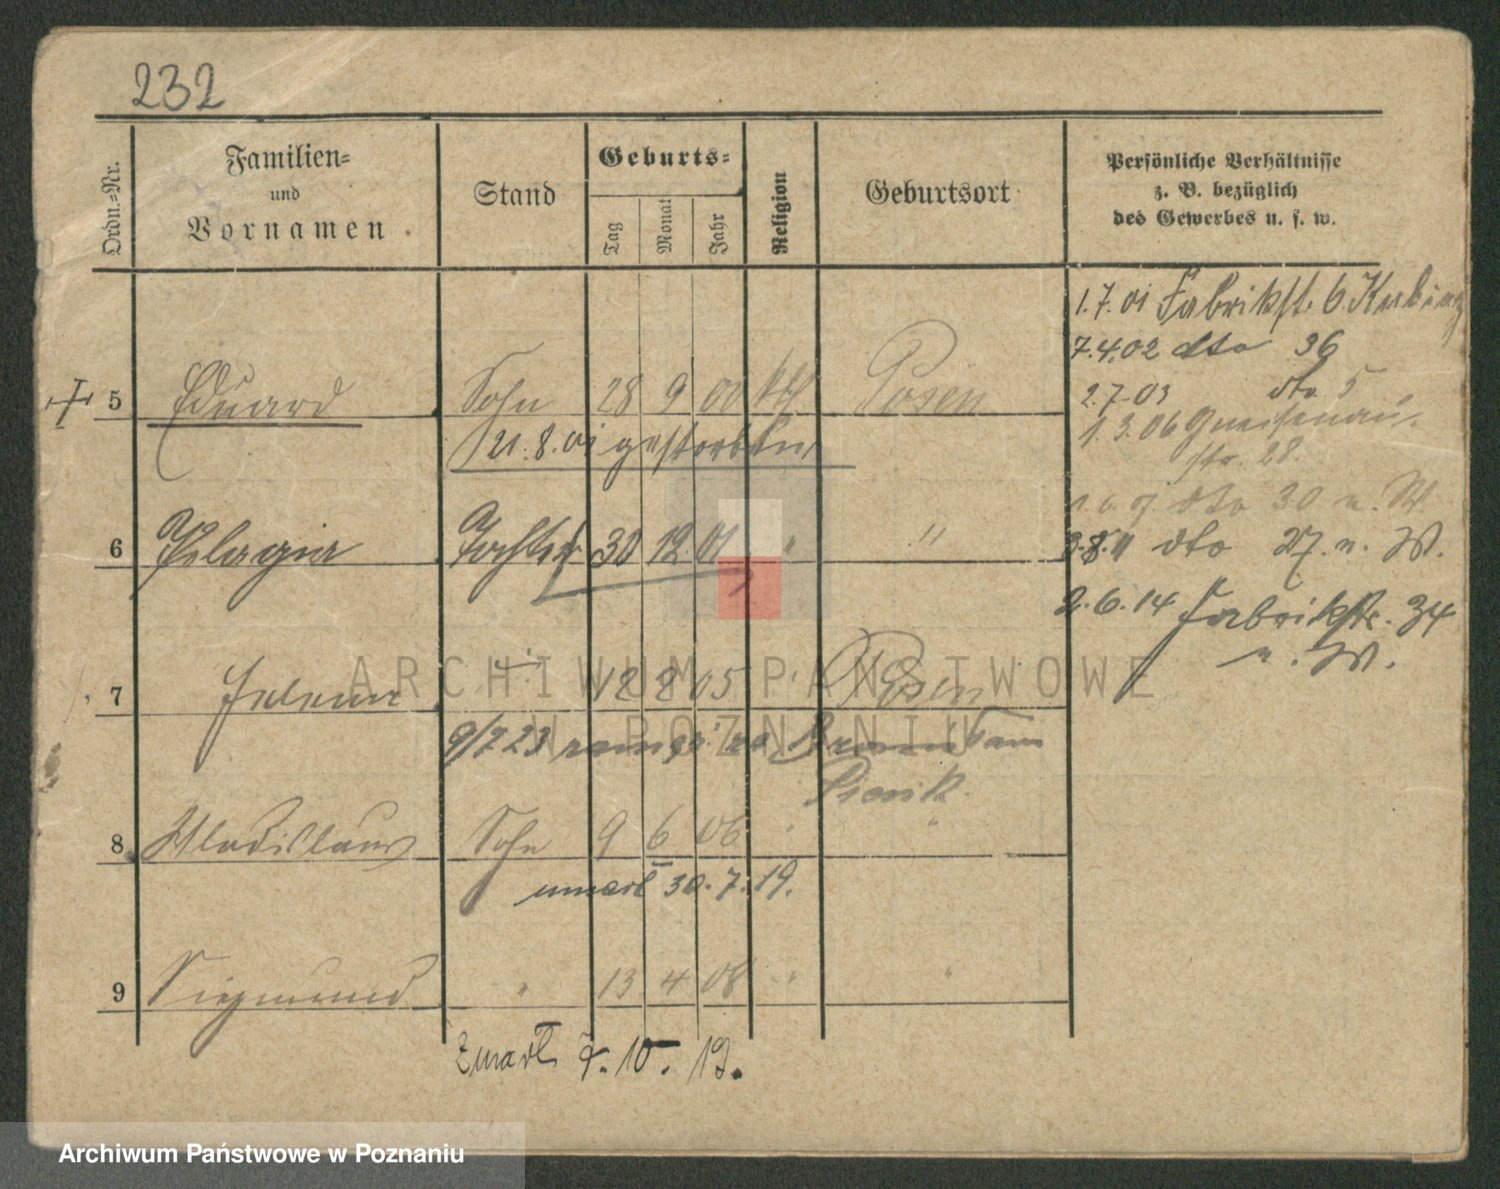 232
Ordn.-Nr.
Familien-
und
Vornamen
Stand
Geburts-
Tag Monat Jahr
Religion
Geburtsort
Persönliche Verhältnisse
z. B. bezüglich
des Gewerbes u. s. w.
1.7.01 Fabrikst. 6
7.4.02 dto 36
5 Eduard Sohn 28 9 00 kth Posen
2.7.03 dto 5
21.8.01 gestorben
1.3.06 Gneisenau-
str. 28.
dto 30 n. W.
6 Pelagia Tochter 30 12 01 " "
3.8.11 dto 27. n. W.
2.6.14 Fabrikstr. 34
n. W.
7 Helena " 18 8 05 " Posen
9/7 23
8 Wladislaus Sohn 9 6 06 " "
umarł 30.7.19.
9 Siegmund " 13 4 08 " "
Zmarł 7.10.19.
ARCHIWUM PAŃSTWOWE
W POZNANIU
Archiwum Państwowe w Poznaniu